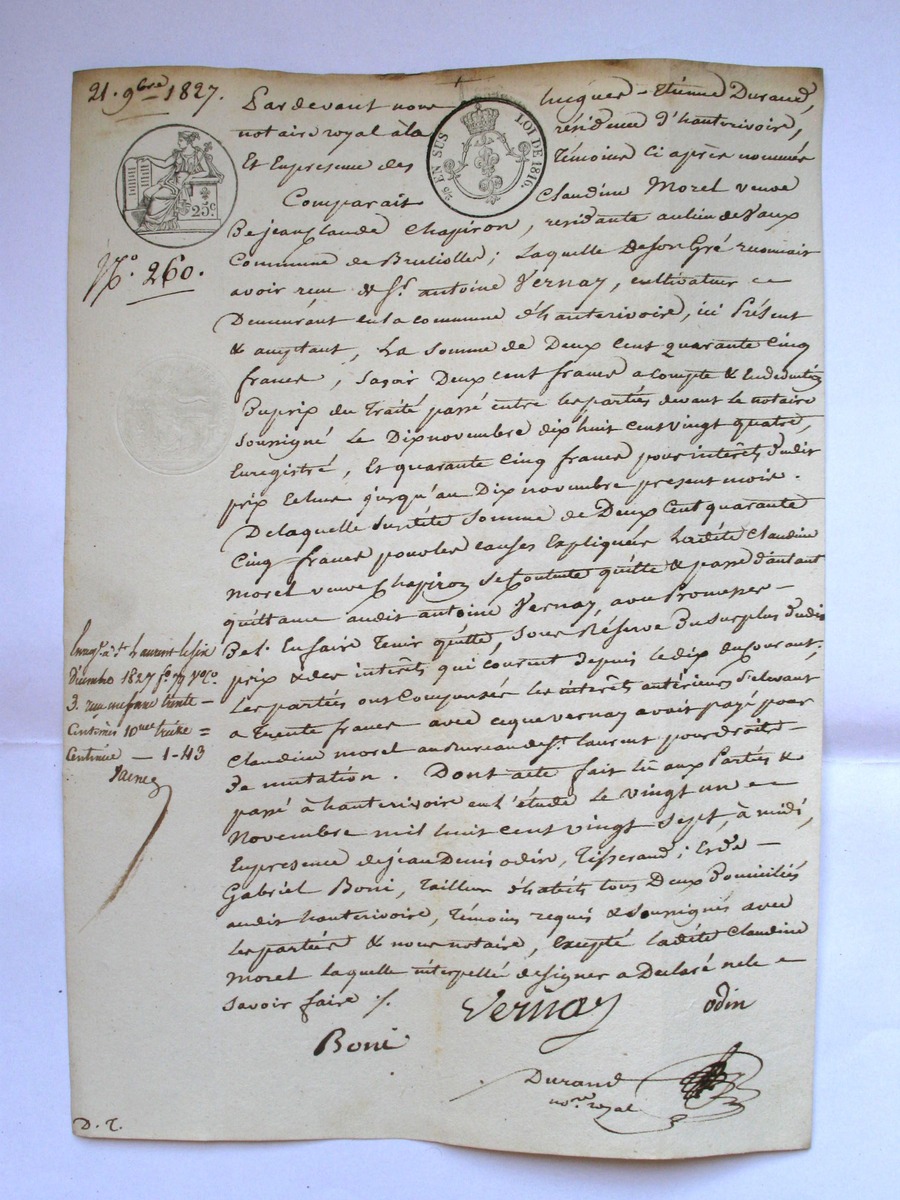 21. 9bre 1827.
Pardevant nous hugues - Etienne Durand,
notaire royal à la résidence d'hauterivoire,
Et Enpresence des Témoins ci après nommés
Comparait Claudine Morel veuve
De jean Claude Chapiron, residante aulieu de Vaux
Commune de Brullioles; laquelle deson Gré reconnait
avoir recu de Sr. antoine Vernay, cultivateur
Demeurant en la commune d'hauterivoire, ici Présent
& acceptant, La Somme de Deux Cent quarante Cinq
francs, Savoir Deux cent francs a compte & En deduction
Du prix du Traité passé entre les parties devant le notaire
soussigné le Dix novembre dix huit cent vingt quatre,
Enregistré, Et quarante Cinq francs pour intérêts dudit
prix Echus jusqu'au Dix novembre present mois.
De laquelle Susdite Somme de Deux Cent quarante
Cinq francs pour les causes Expliquées Ladite Claudine
morel veuve Chapiron Se Contente quitte & passe d'autant
quittance audit antoine Vernay, avec Promesse -
De l'En faire Tenir quitte, sous Réserve du Surplus dudit
prix & des interêts qui courent depuis le dix du Courant;
Les parties ont Compensés les intérêts antérieurs S'elevant
a Trente francs avec ce que vernay avait payé pour
Claudine morel au Bureau de St. laurent pour droits -
De mutation. Dont acte fait Lû aux Parties &
passé à hauterivoire en l'étude Le vingt un
Novembre mil huit cent vingt Sept, à midi,
En presence de jean Denis odin, Tisserand; Et de -
Gabriel Boni, Tailleur d'habits tous Deux Domiciliés
audit hauterivoire, Témoins requis & Soussignés avec
Les parties & nous notaire, Excepté ladite Claudine
Morel laquelle interpellé de signer a Declaré ne le
savoir faire ./.
Vernay odin
Boni
Durand
nore royal
D. T.
25 c.
EN SUS LOI DE 1816.
No. 260.
Enregé à St. Laurent le six
Décembre 1827 fo 79 Vo Co.
3. recu un franc trente -
Centimes 10me treize =
Centimes — 1-43